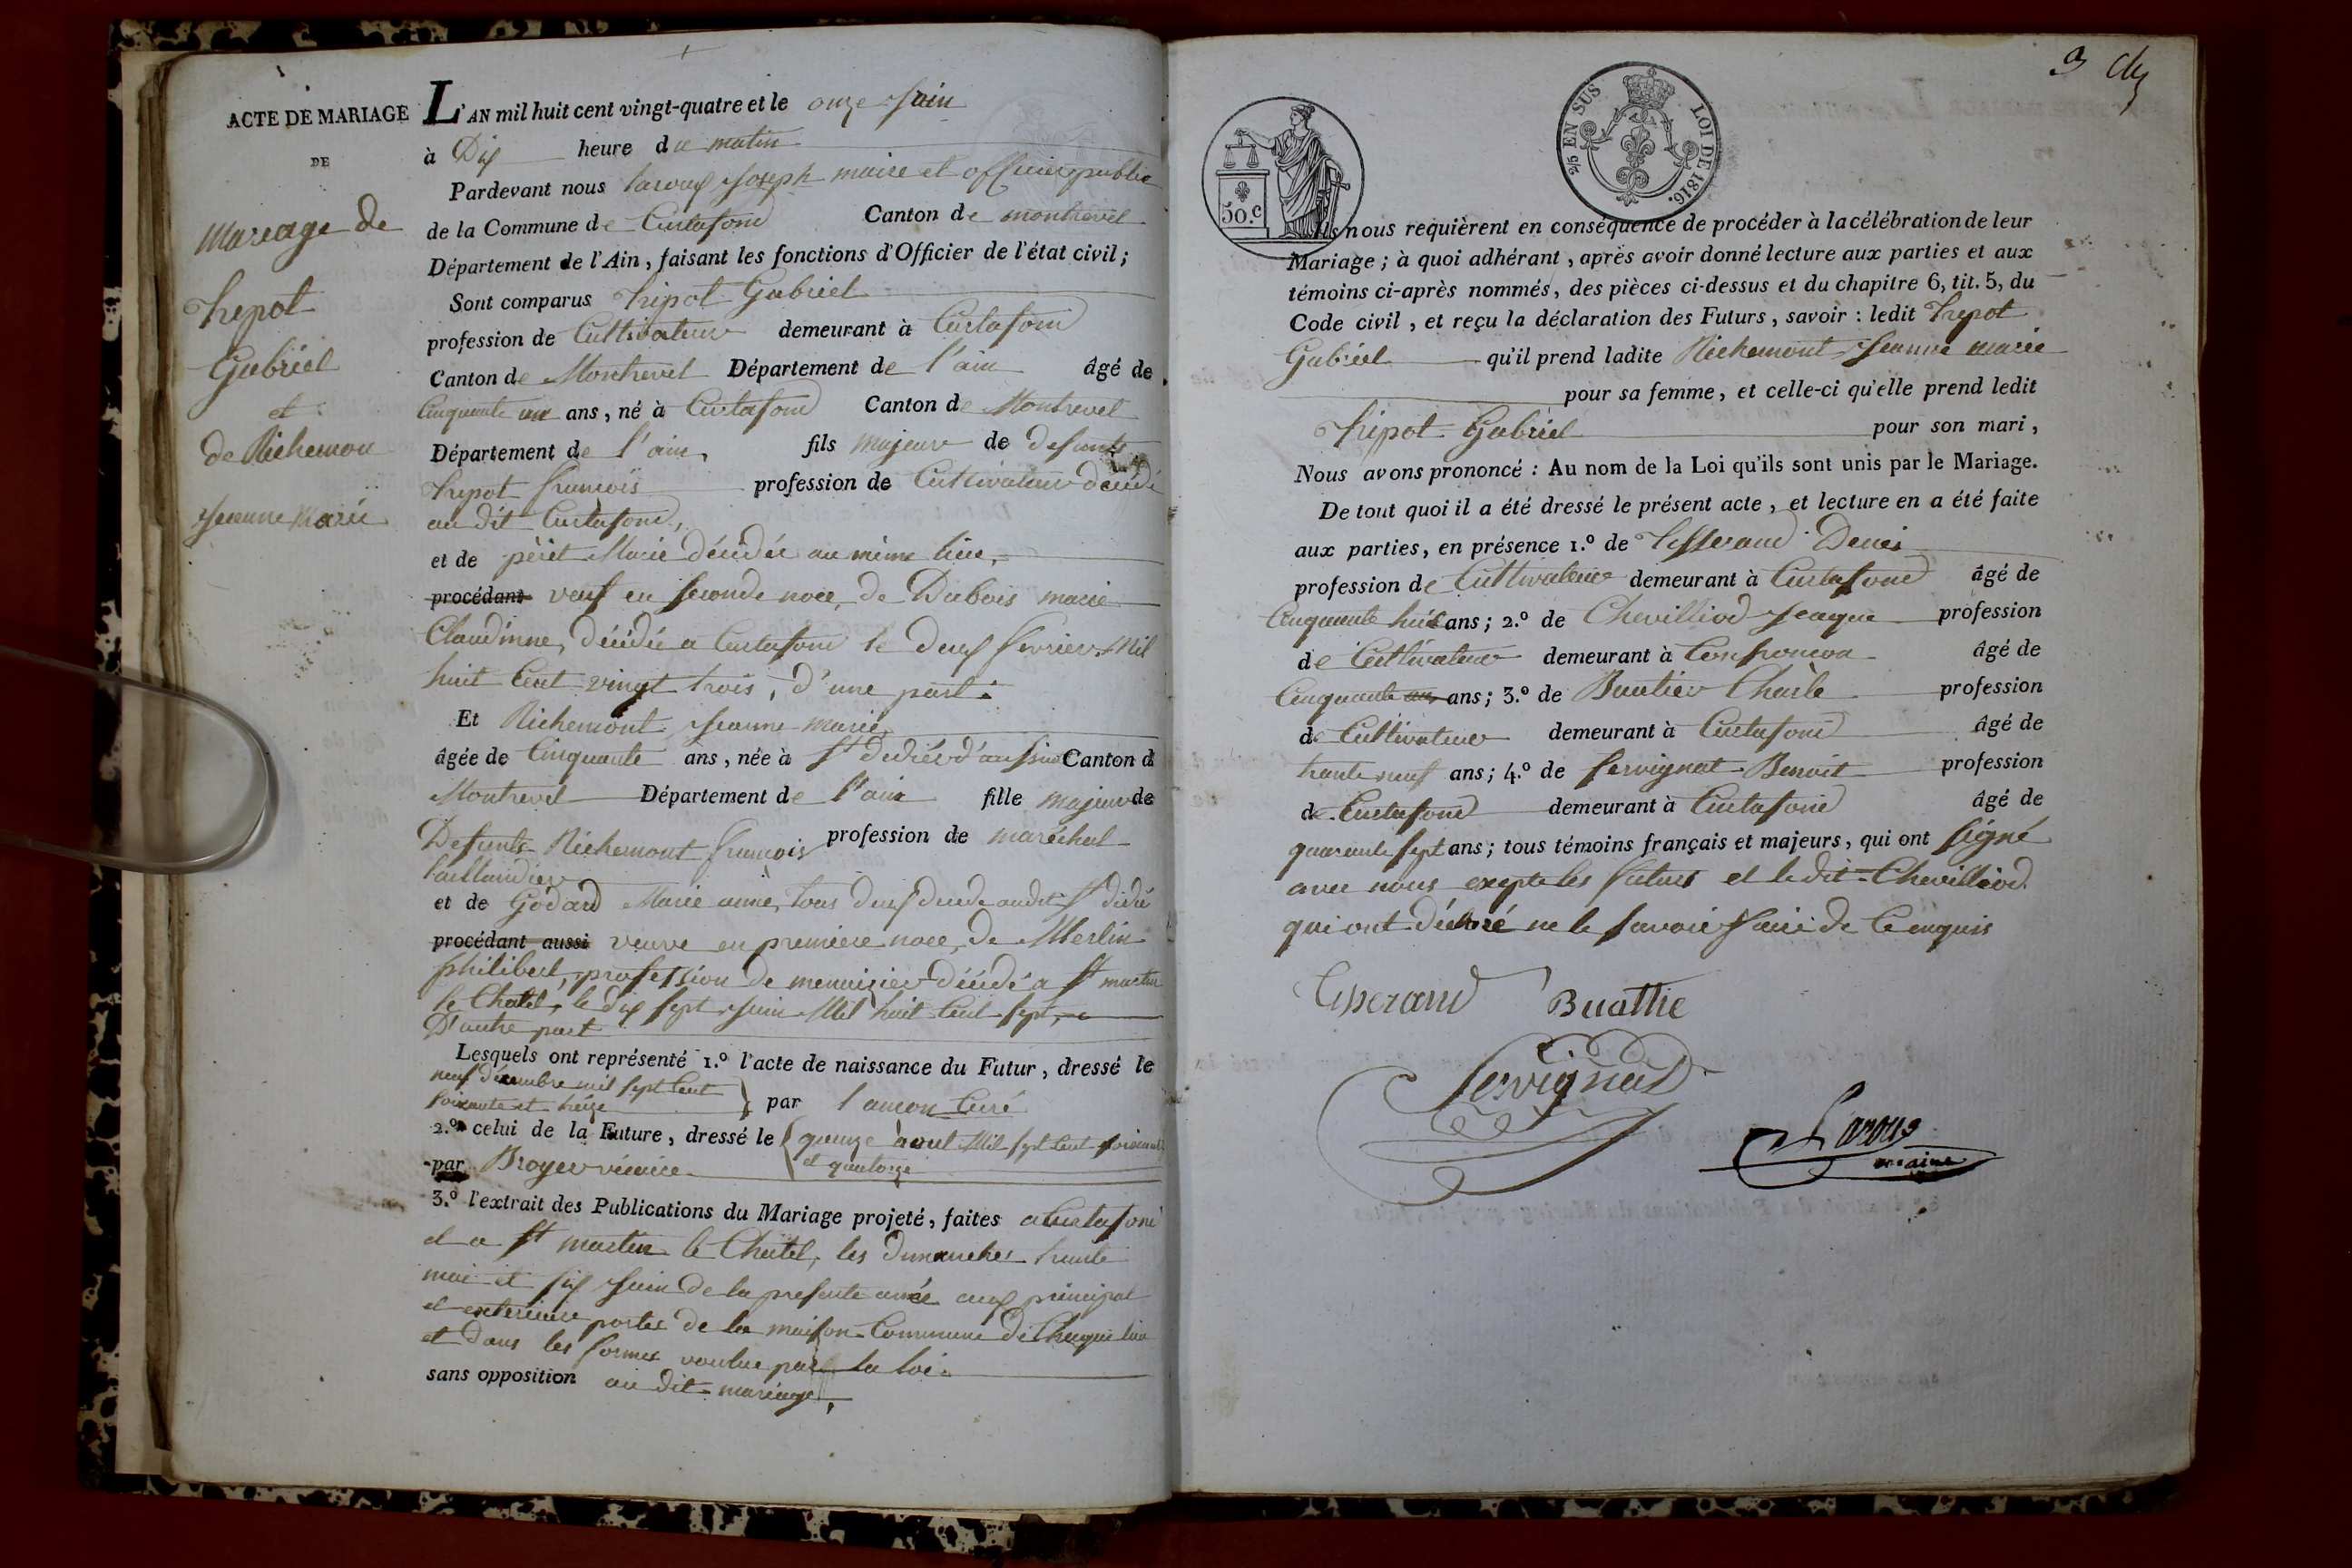 ACTE DE MARIAGE
DE
Mareage de
Tripot
Gabriël
et
de Richemon
Jeanne Marie
L'AN mil huit cent vingt-quatre et le onze Juin
à Dix heure du matin
Pardevant nous Laroux Joseph maire et officier public
de la Commune de Curtafond Canton de montrevel
Département de l'Ain, faisant les fonctions d'Officier de l'état civil;
Sont comparus Tripot Gabriel
profession de Cultivateur demeurant à Curtafond
Canton de Montrevel Département de l'ain âgé de
Cinquante un ans, né à Curtafond Canton de Montrevel
Département de l'ain, fils majeur de defunts
Tripot françois profession de Cultivateur décédé
au dit Curtafond,
et de périt Marie décédée au même lieu,
procédant veuf en seconde noce, de Dubois marie
Claudinne, décédée a Curtafond le deux fevrier Mil
huit Cent vingt trois, d'une part.
Et Richemont Jeanne marie,
âgée de Cinquante ans, née à St didier d'aussiat Canton d
Montrevel Département de l'ain fille majeur de
Defunts Richemont françois profession de maréchal
taillandier
et de Godard Marie anne, tous deux décédé audit St didié
procédant aussi veuve en premiere noce, de Merlin
philibert, profession de menuizier décédé a St martin
le Chatel, le dix sept Juin Mil huit Cent sept,
D'autre part
Lesquels ont représenté 1.º l'acte de naissance du Futur, dressé le
neuf décembre mil sept Cent
soixante et treize par Curé
2.º celui de la Future, dressé le quinze aout Mil sept Cent soixante
et quatorze
par Broyer vicaire
3.º l'extrait des Publications du Mariage projeté, faites a Curtafond
et a St martin le Chatel, les dimanches trente
mai et six Juin de la presente année aux principal
et exterieure portes de la maison Commune de Chaque lieu
et dans les formes voulue par la loi
sans opposition au dit mariage,
3
50.c
2/5 EN SUS LOI DE 1816.
Ils nous requièrent en conséquence de procéder à la célébration de leur
Mariage; à quoi adhérant, après avoir donné lecture aux parties et aux
témoins ci-après nommés, des pièces ci-dessus et du chapitre 6, tit. 5, du
Code civil, et reçu la déclaration des Futurs, savoir: ledit Tripot
Gabriel qu'il prend ladite Richemont Jeanne marie
pour sa femme, et celle-ci qu'elle prend ledit
Tripot Gabriel pour son mari,
Nous avons prononcé: Au nom de la Loi qu'ils sont unis par le Mariage.
De tout quoi il a été dressé le présent acte, et lecture en a été faite
aux parties, en présence 1.º de Tisserand Denis
profession de Cultivateur demeurant à Curtafond âgé de
Cinquante huit ans; 2.º de Chevilliod Jeaque profession
de Cultivateur demeurant à Confrancon âgé de
Cinquante un ans; 3.º de Buatier Charle profession
de Cultivateur demeurant à Curtafond âgé de
trante neuf ans; 4.º de Servignat Benoit profession
de Curtafond demeurant à Curtafond âgé de
quarante sept ans; tous témoins français et majeurs, qui ont signé
avec nous excepte les futurs et le dit Chevilliod
qui ont déclaré ne le savoir faire de Ce enquis
Tisserand Buattie
Servignat
Laroux
maire